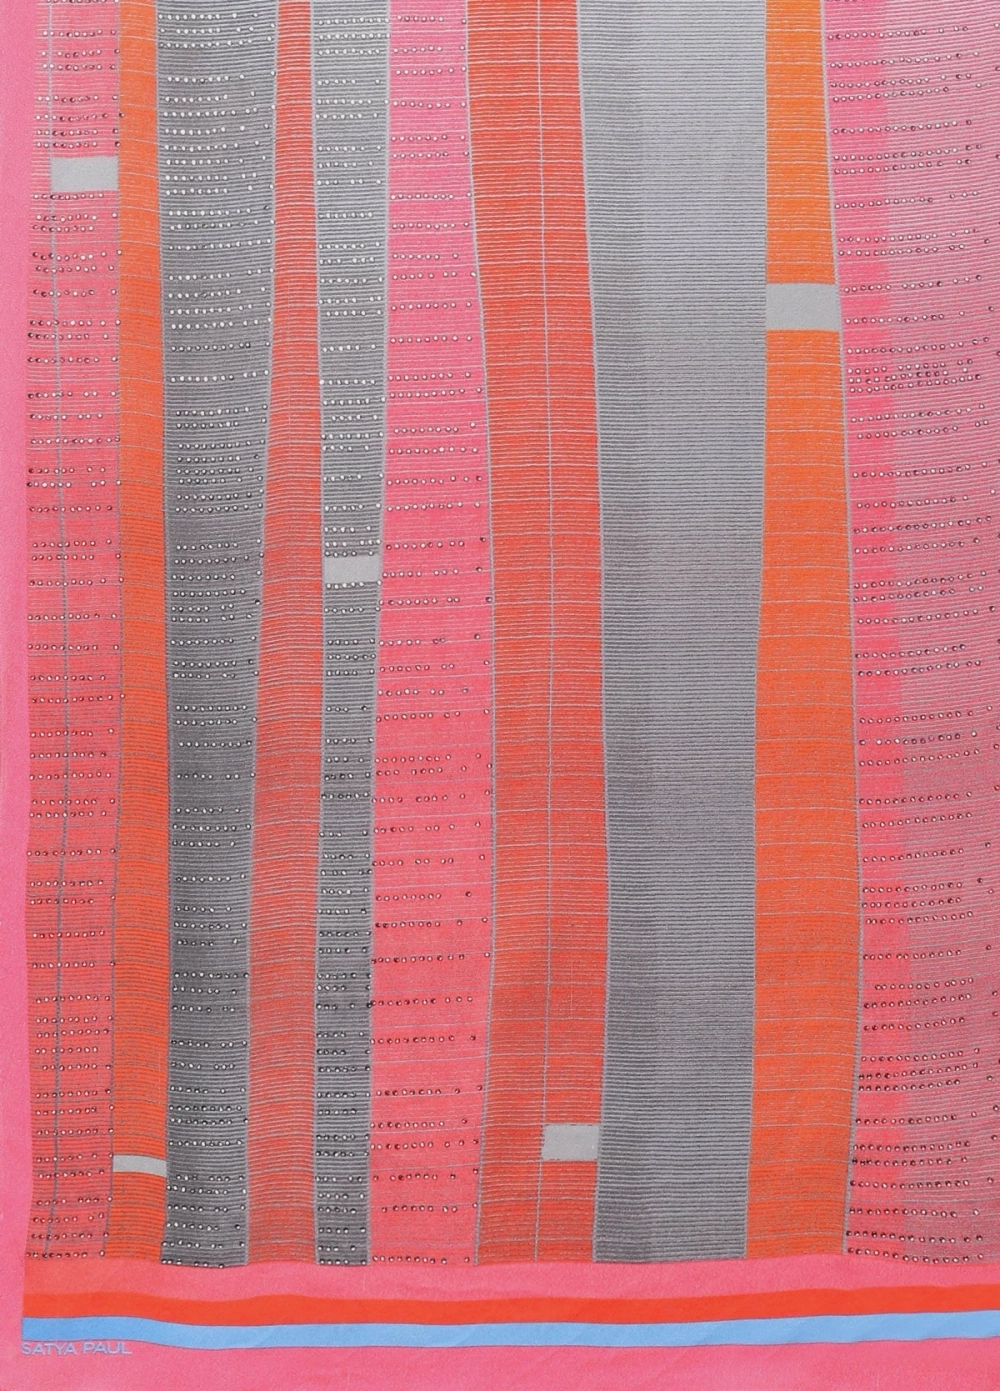 SATYA PAUL